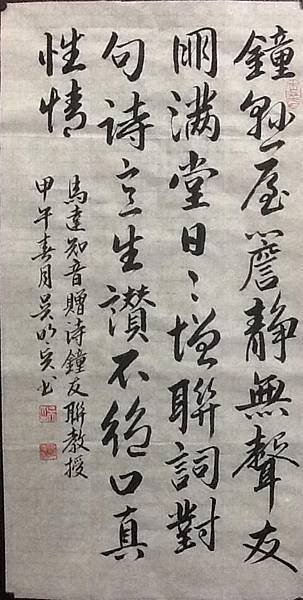 鐘懸屋簷靜無聲友
朋滿堂日〻增聯詞對
句詩意生讚不絕口真
性情
馬達知音贈詩鐘友聯教授
甲午春月吳书